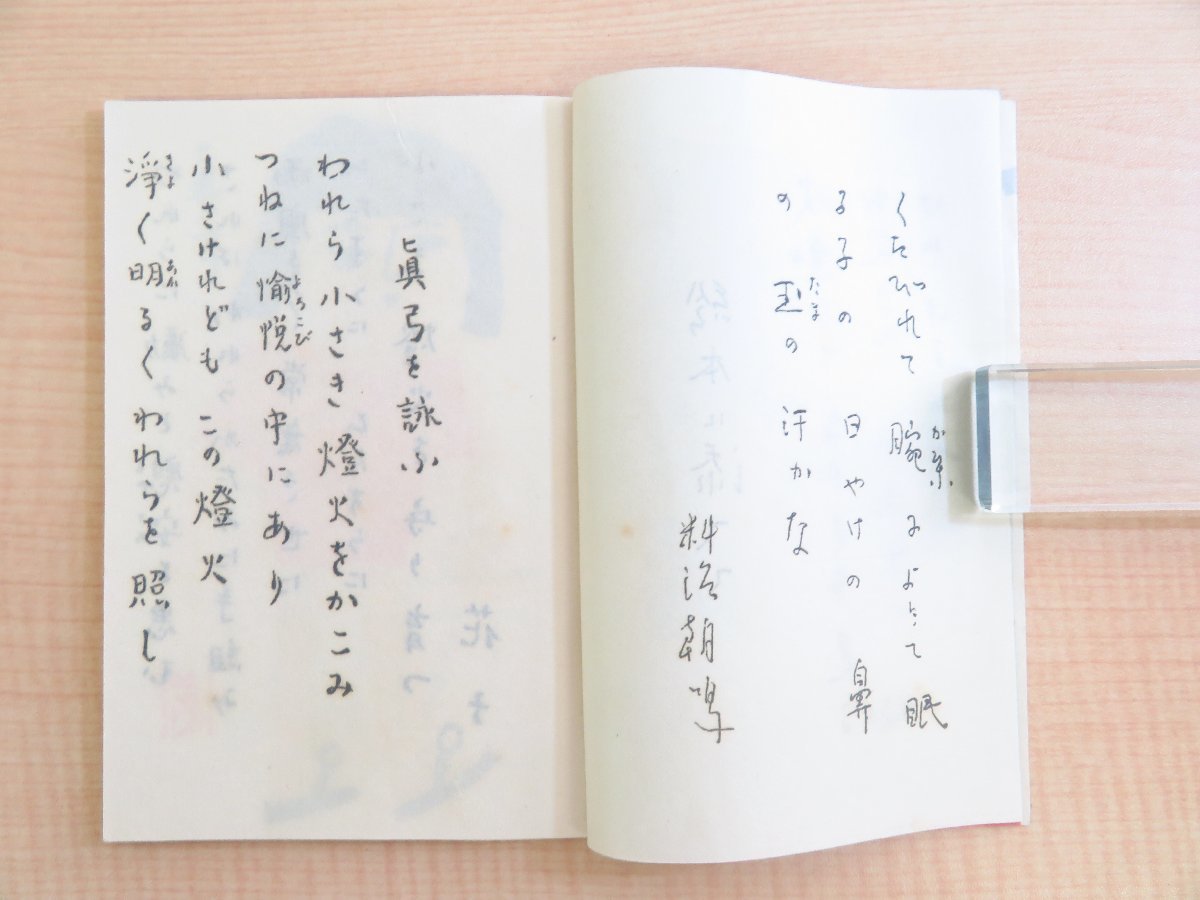 くたびれて 腕によつて 眠
る子の 日やけの 鼻
の 玉の 汗かな
料治朝鳴
眞弓を詠ふ
われら小さき燈火をかこみ
つねに愉悦の中にあり
小さけれどもこの燈火
淨く明るくわれらを照し